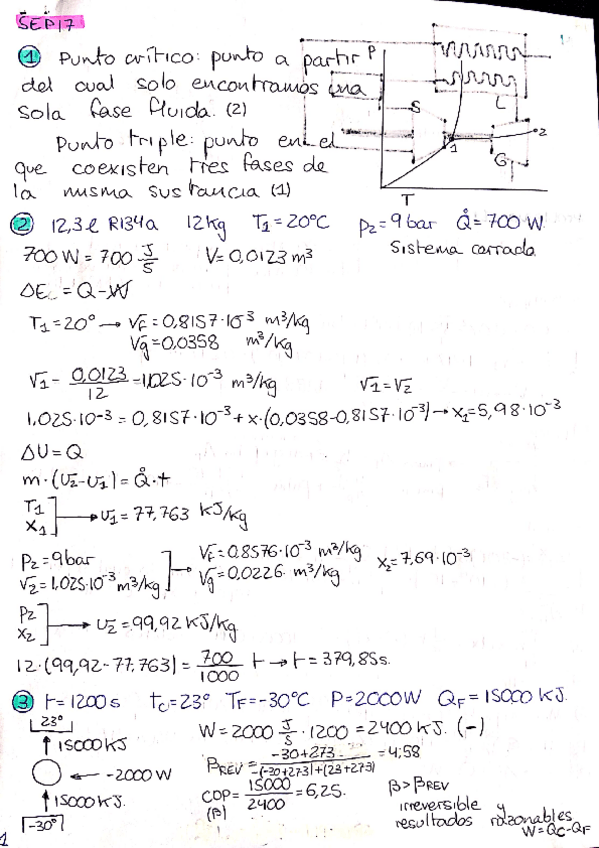 SEP17
① Punto crítico: punto a partir
del cual solo encontramos una
sola fase fluida. (2)
Punto triple: punto en el
que coexisten tres fases de
la misma sustancia (1)
P
S
L
G
1
2
T
② 12,3ℓ R134a 12kg T₁=20°C p₂=9bar Q̊=700W
Sistema cerrado
700W = 700 J/s V=0,0123 m³
ΔE = Q-W
T₁=20° → vf=0,8157·10⁻³ m³/kg
vg=0,0358 m³/kg
v₁- 0,0123/12 =1,025·10⁻³ m³/kg v₁=v₂
1,025·10⁻³ = 0,8157·10⁻³+x·(0,0358-0,8157·10⁻³)→x₁=5,98·10⁻³
ΔU=Q
m·(u₂-u₁)=Q̊·t
T₁
x₁ ] → u₁=77,763 kJ/kg
p₂=9bar
v₂=1,025·10⁻³ m³/kg ] → vf=0,8576·10⁻³ m³/kg
vg=0,0226 m³/kg
x₂=7,69·10⁻³
p₂
x₂ ] → u₂=99,92 kJ/kg
12·(99,92-77,763)= 700/1000 t → t=379,85s.
③ t=1200s tc=23° TF=-30°C P=2000W QF=15000 kJ.
23°
↑15000 kJ
← -2000 W
↑15000 kJ.
-30°
W=2000 J/s · 1200 = 2400 kJ. (-)
βREV = -30+273/-(-30+273)+(23+273) = 4,58
COP= 15000/2400 =6,25.
(β)
β>βREV
irreversible y
resultados razonables
W=Qc-QF
1